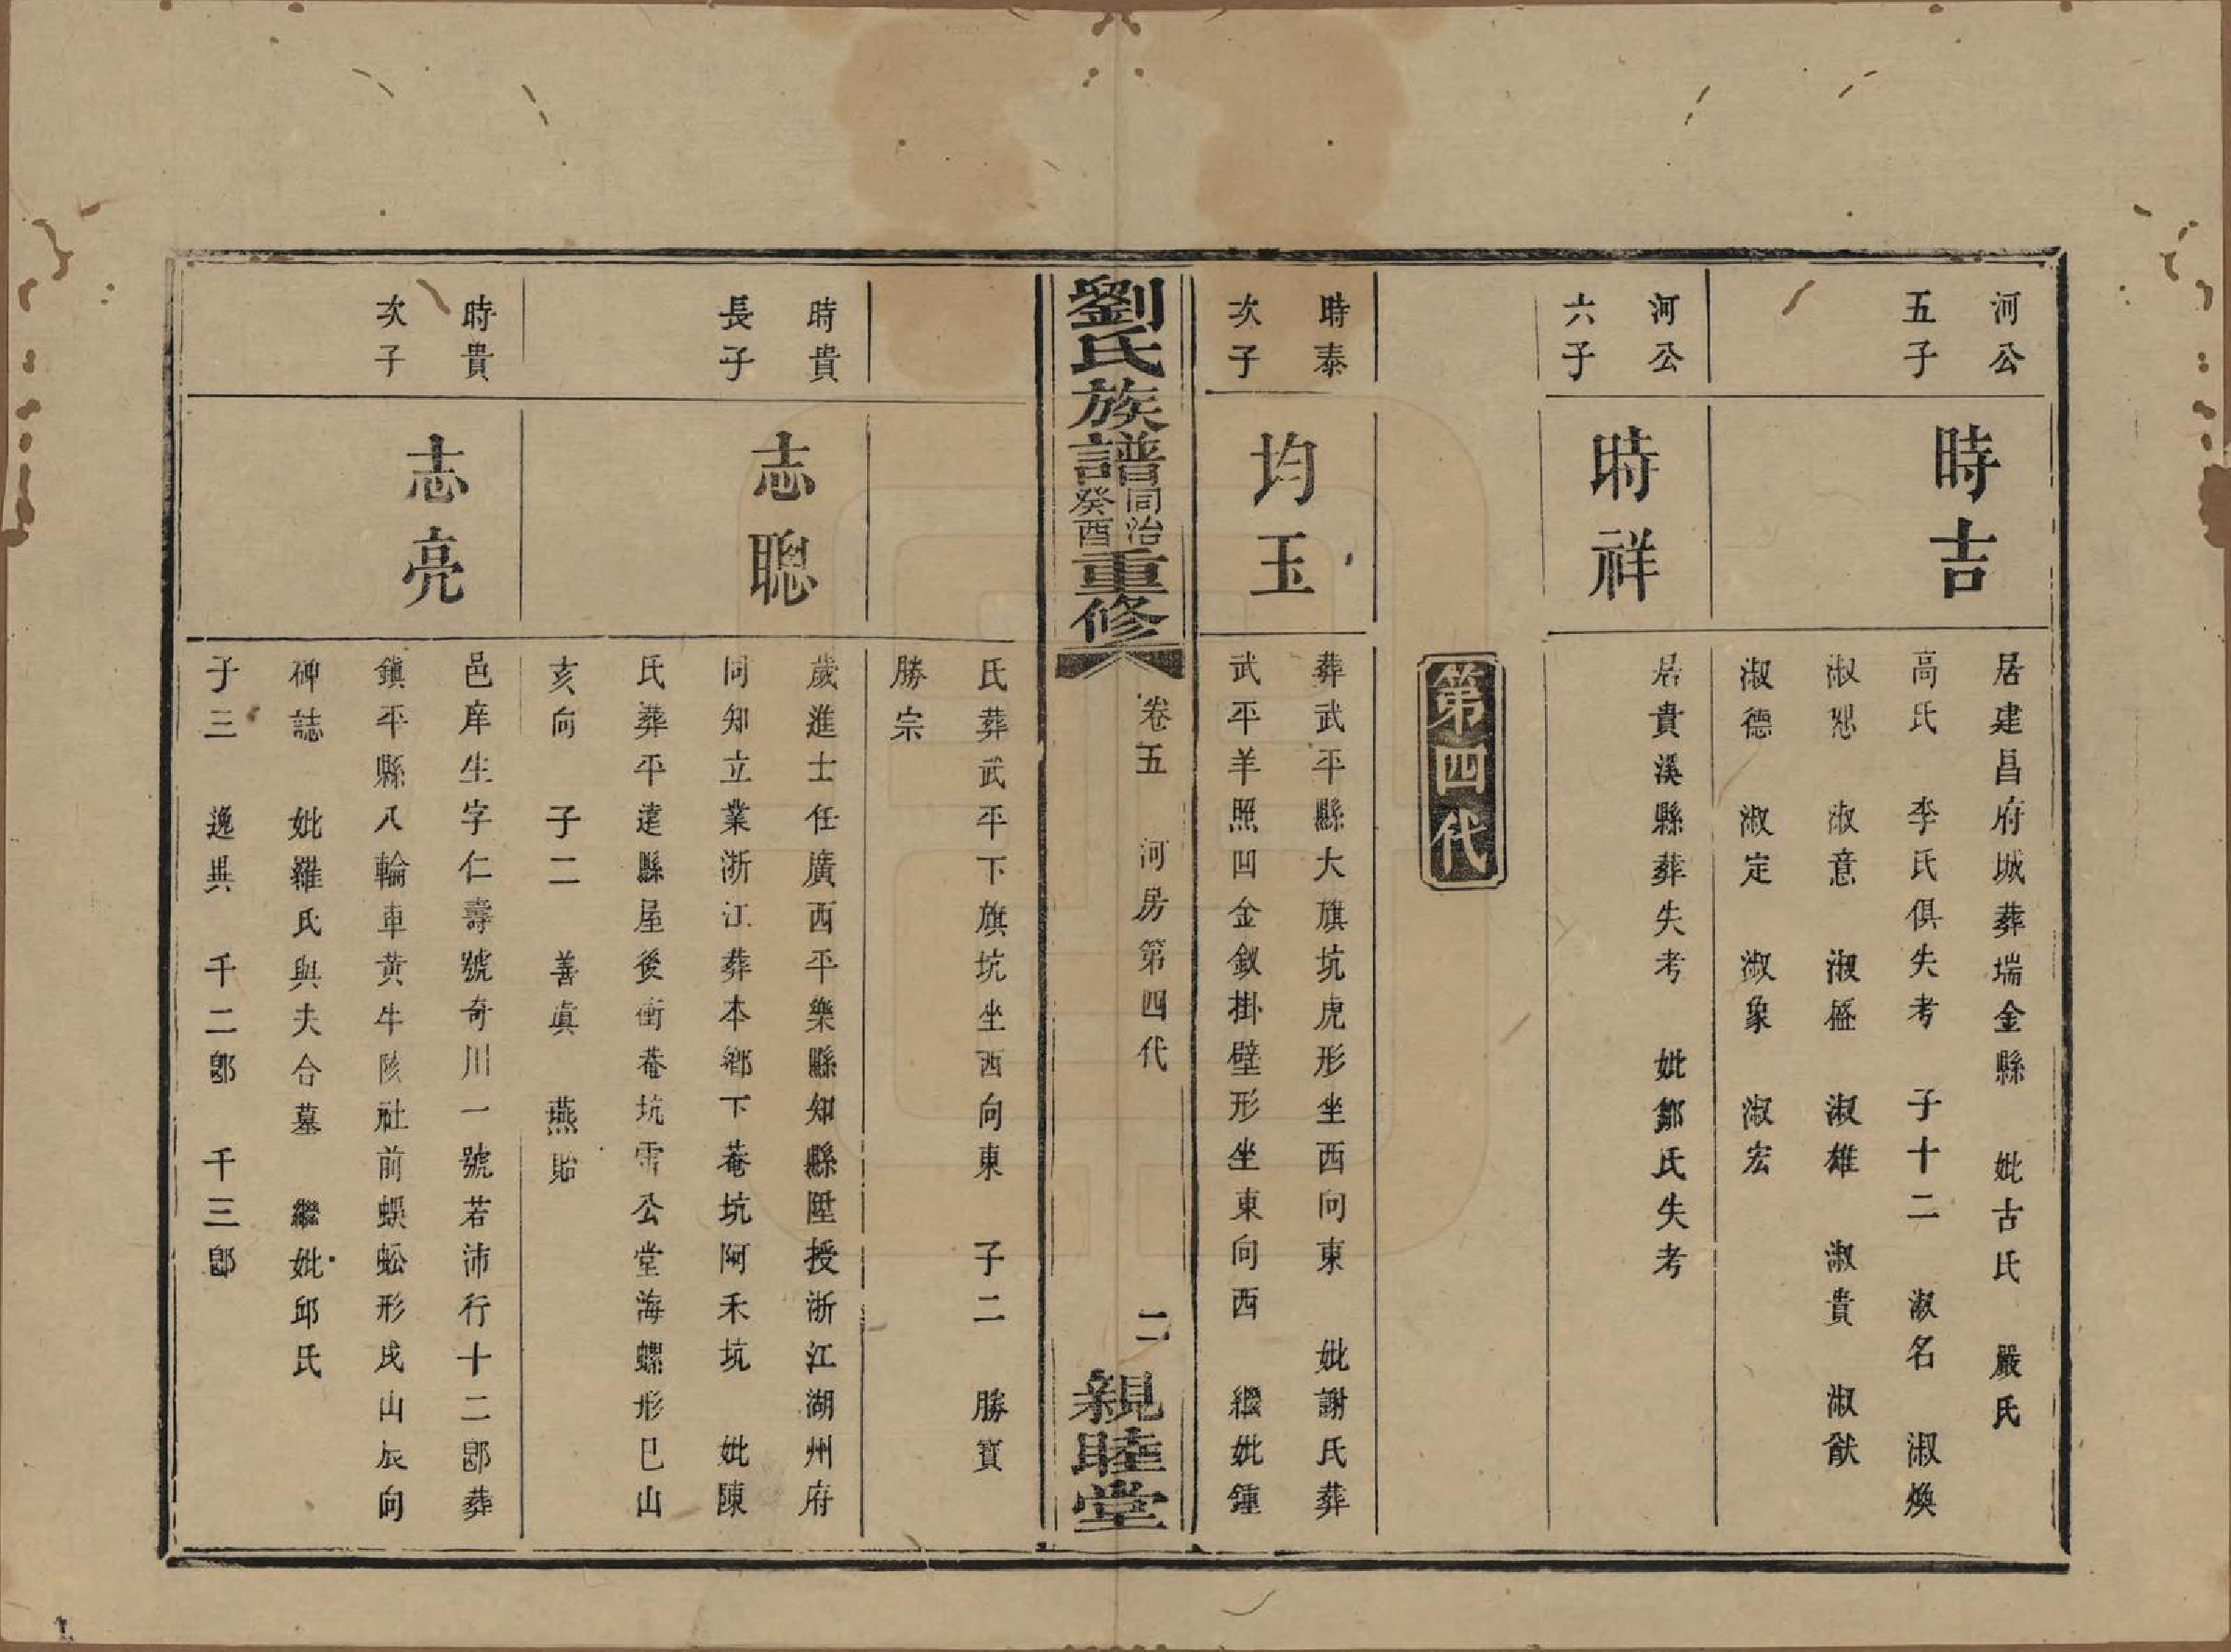 河公
五子
時吉
居建昌府城葬瑞金縣　妣古氏　嚴氏
高氏　李氏俱失考　子十二　淑名　淑煥
淑恕　淑意　淑盛　淑雄　淑貴　淑猷
淑德　淑定　淑象　淑宏
河公
六子
時祥
居貴溪縣葬失考　妣鄒氏失考
第四代
時泰
次子
均玉
葬武平縣大旗坑虎形坐西向東　妣謝氏葬
武平羊照凹金釵掛壁形坐東向西　繼妣鍾
劉氏族譜同治癸酉重修
卷五　河房第四代　二
親睦堂
氏葬武平下旗坑坐西向東　子二　勝寳
勝宗
時貴
長子
志聰
歲進士任廣西平樂縣知縣陞授浙江湖州府
同知立業浙江葬本鄉下菴坑阿禾坑　妣陳
氏葬平遠縣屋後衝菴坑雷公堂海螺形巳山
亥向　子二　善眞　燕貽
時貴
次子
志亮
邑庠生字仁壽號奇川一號若沛行十二郎葬
鎮平縣八輪車黄牛陔社前蜈蚣形戌山辰向
碑誌　妣羅氏與夫合墓　繼妣邱氏
子三　逸典　千二郎　千三郎